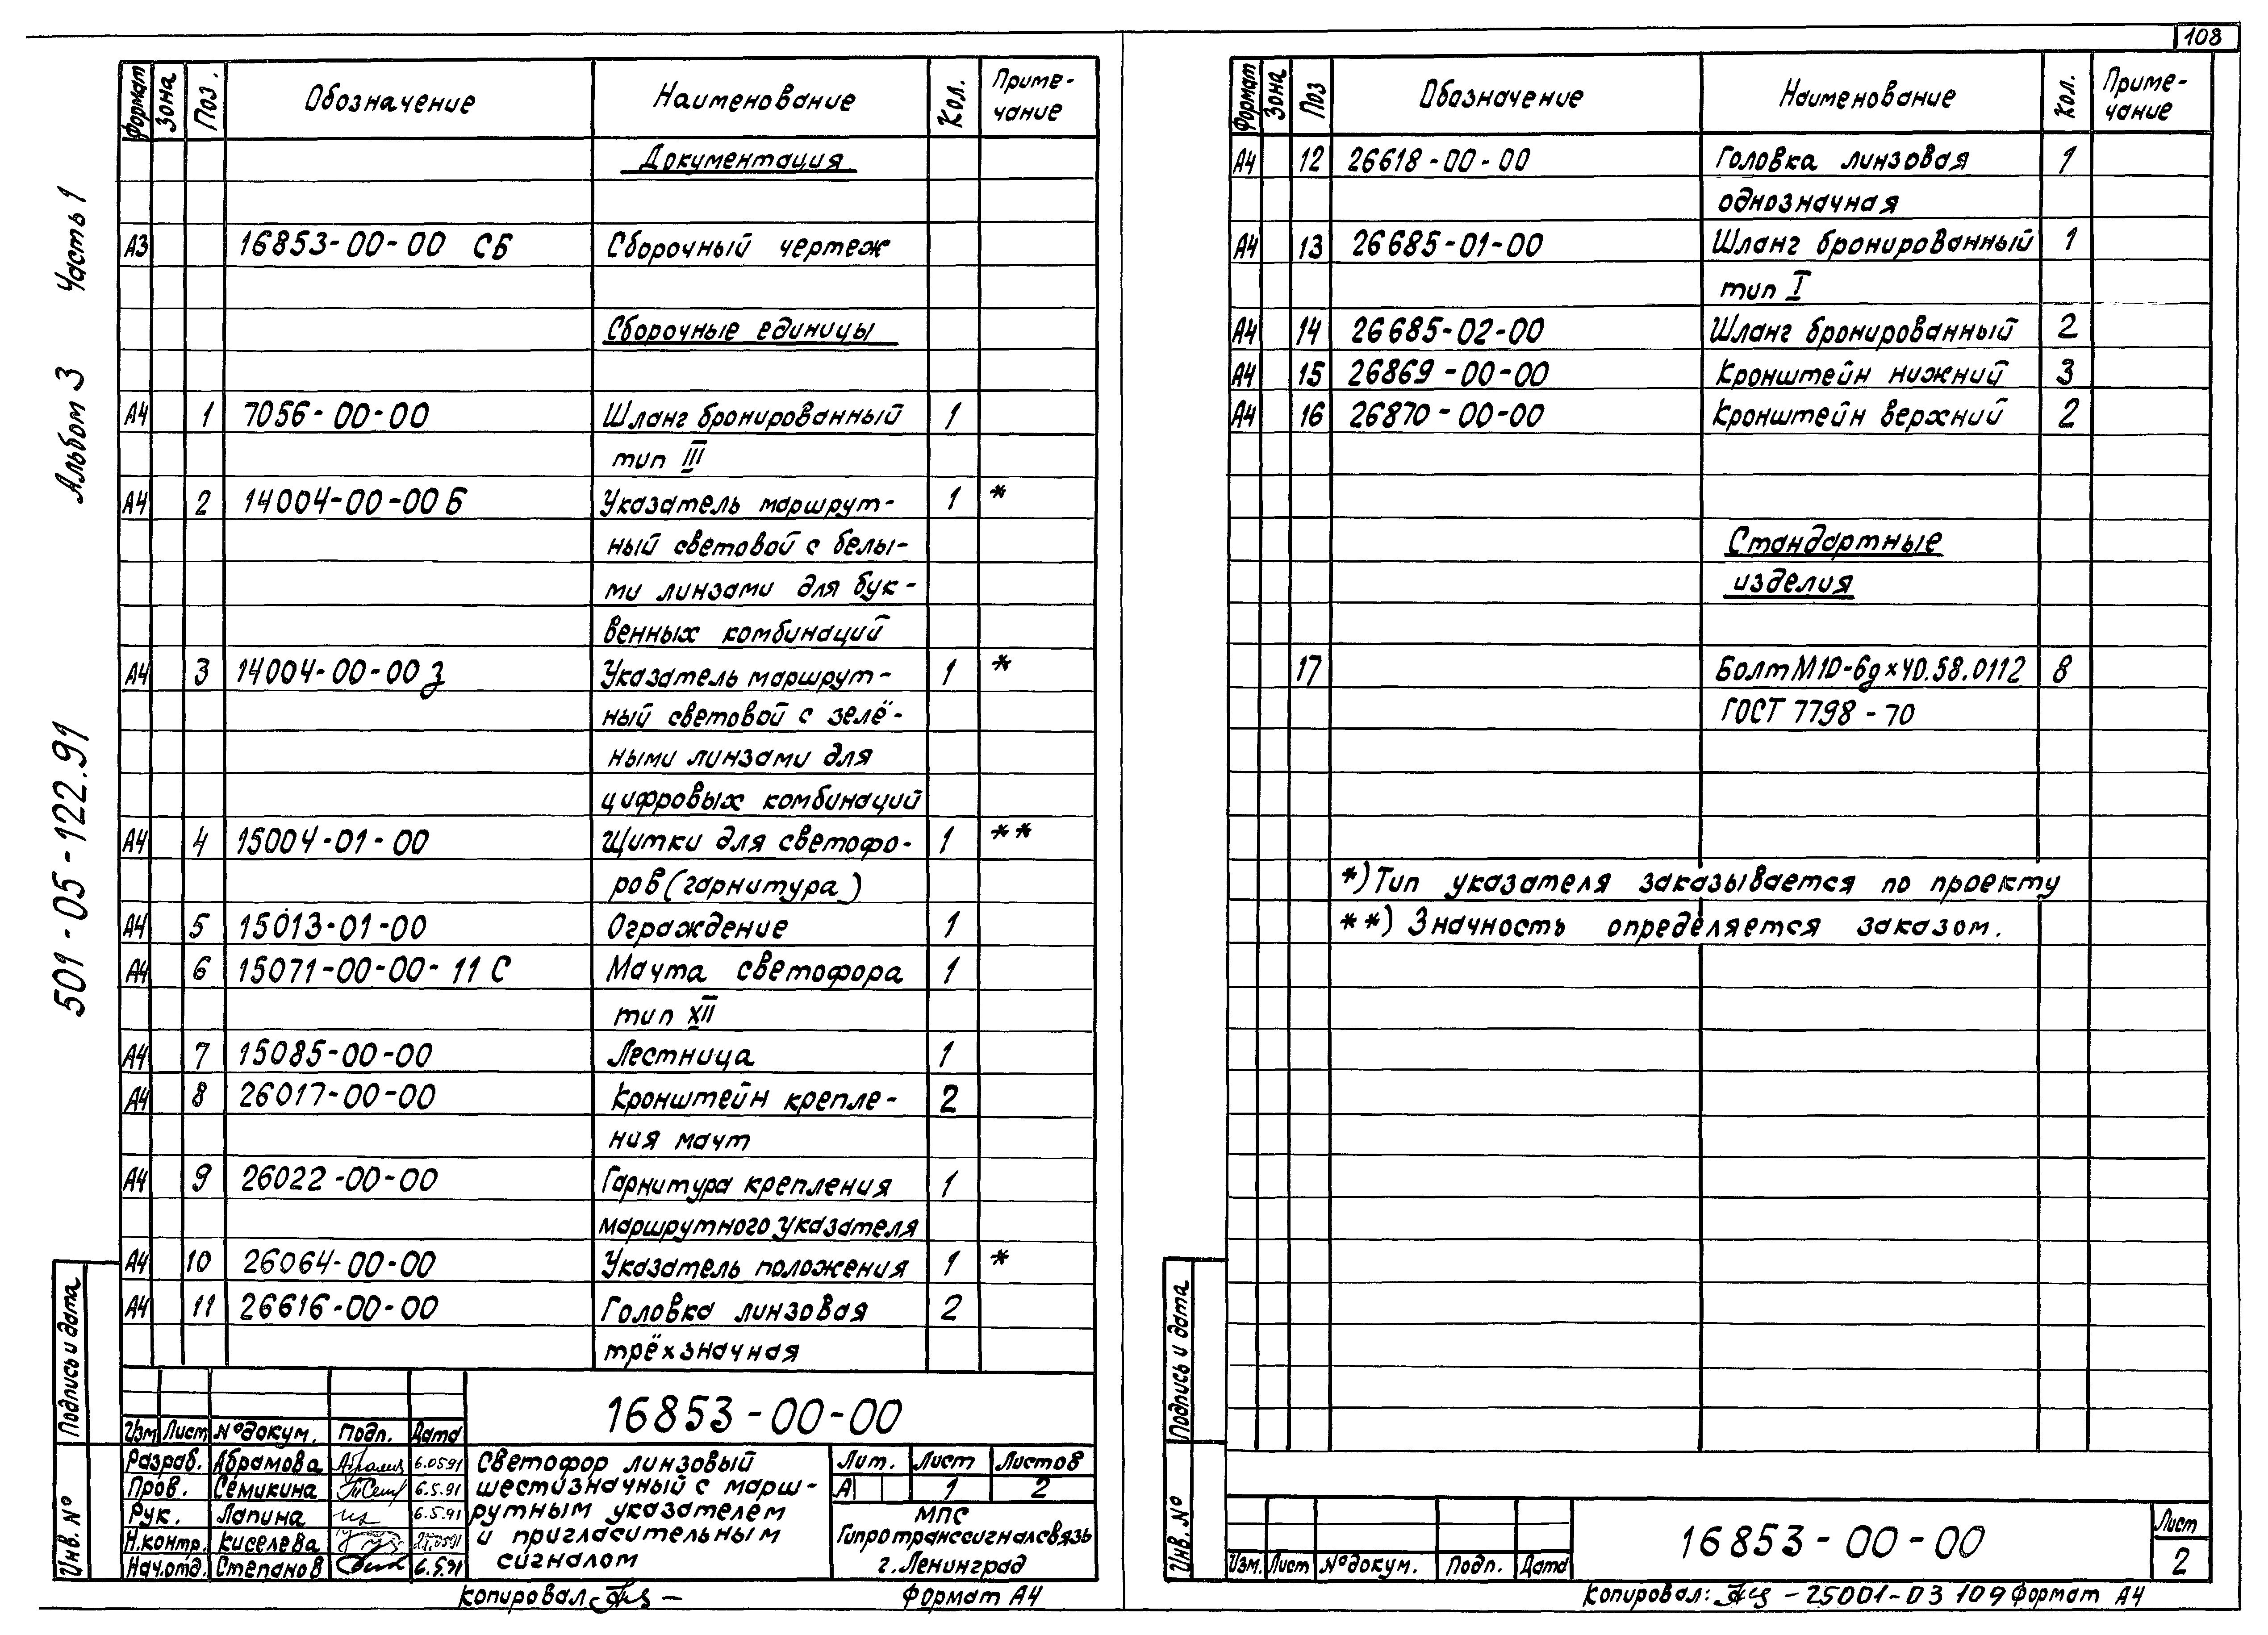 108
Альбом 3 Часть 1
501-05-122.91
Формат Зона Поз. Обозначение Наименование Кол. Приме-
чание
Документация
А3 16853-00-00 СБ Сборочный чертеж
Сборочные единицы
А4 1 7056-00-00 Шланг бронированный 1
тип III
А4 2 14004-00-00 Б Указатель маршрут- 1 *
ный световой с белы-
ми линзами для бук-
венных комбинаций
А4 3 14004-00-00 з Указатель маршрут- 1 *
ный световой с зелё-
ными линзами для
цифровых комбинаций
А4 4 15004-01-00 Щитки для светофо- 1 **
ров (гарнитура)
А4 5 15013-01-00 Ограждение 1
А4 6 15071-00-00-11 С Мачта светофора 1
тип XII
А4 7 15085-00-00 Лестница 1
А4 8 26017-00-00 Кронштейн крепле- 2
ния мачт
А4 9 26022-00-00 Гарнитура крепления 1
маршрутного указателя
А4 10 26064-00-00 Указатель положения 1 *
А4 11 26616-00-00 Головка линзовая 2
трёхзначная
Подпись и дата
Инв. №
16853-00-00
Изм Лист № докум. Подп. Дата
Разраб. Абрамова 6.05.91
Пров. Семикина 6.5.91
Рук. Лапина 6.5.91
Н.контр. Киселева
Нач.отд. Степанов 6.5.91
Светофор линзовый
шестизначный с марш-
рутным указателем
и пригласительным
сигналом
Лит. Лист Листов
А 1 2
МПС
Гипротранссигналсвязь
г. Ленинград
Копировал Формат А4
Формат Зона Поз Обозначение Наименование Кол. Приме-
чание
А4 12 26618-00-00 Головка линзовая 1
однозначная
А4 13 26685-01-00 Шланг бронированный 1
тип I
А4 14 26685-02-00 Шланг бронированный 2
А4 15 26869-00-00 Кронштейн нижний 3
А4 16 26870-00-00 Кронштейн верхний 2
Стандартные
изделия
17 Болт М10-6gх40.58.0112 8
ГОСТ 7798-70
*) Тип указателя заказывается по проекту
**) Значность определяется заказом.
Подпись и дата
Инв. №
Изм. Лист № докум. Подп. Дата
16853-00-00
Лист
2
Копировал: -25001-03 109 Формат А4